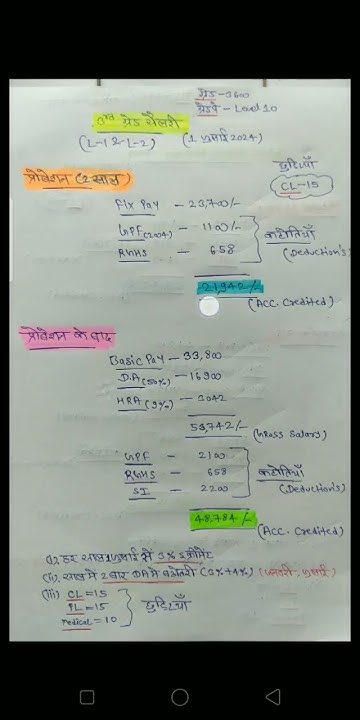 ग्रेड - 3600
ग्रेडपे - Level 10
3rd ग्रेड सैलरी
(L-1 & L-2) (1 जुलाई 2024)
छुट्टियाँ
CL-15
प्रोबेशन (2 साल)
Fix Pay - 23,700/-
GPF(2004) - 1100/-
RGHS - 658
कटौतियाँ
(Deduction's)
21,942/-
(Acc. Credited)
प्रोबेशन के बाद
Basic Pay - 33,800
DA(50%) - 16900
HRA(9%) - 3042
53,742/- (Gross Salary)
GPF - 2100
RGHS - 658
SI - 2200
कटौतियाँ
(Deduction's)
48,784/-
(Acc. Credited)
(i) हर साल 1 जुलाई को 3% इंक्रीमेंट
(ii) साल में 2 बार DA में बढोतरी (3%+4%) (जनवरी, जुलाई)
(iii) CL=15
PL=15
Medical=10
छुट्टियाँ